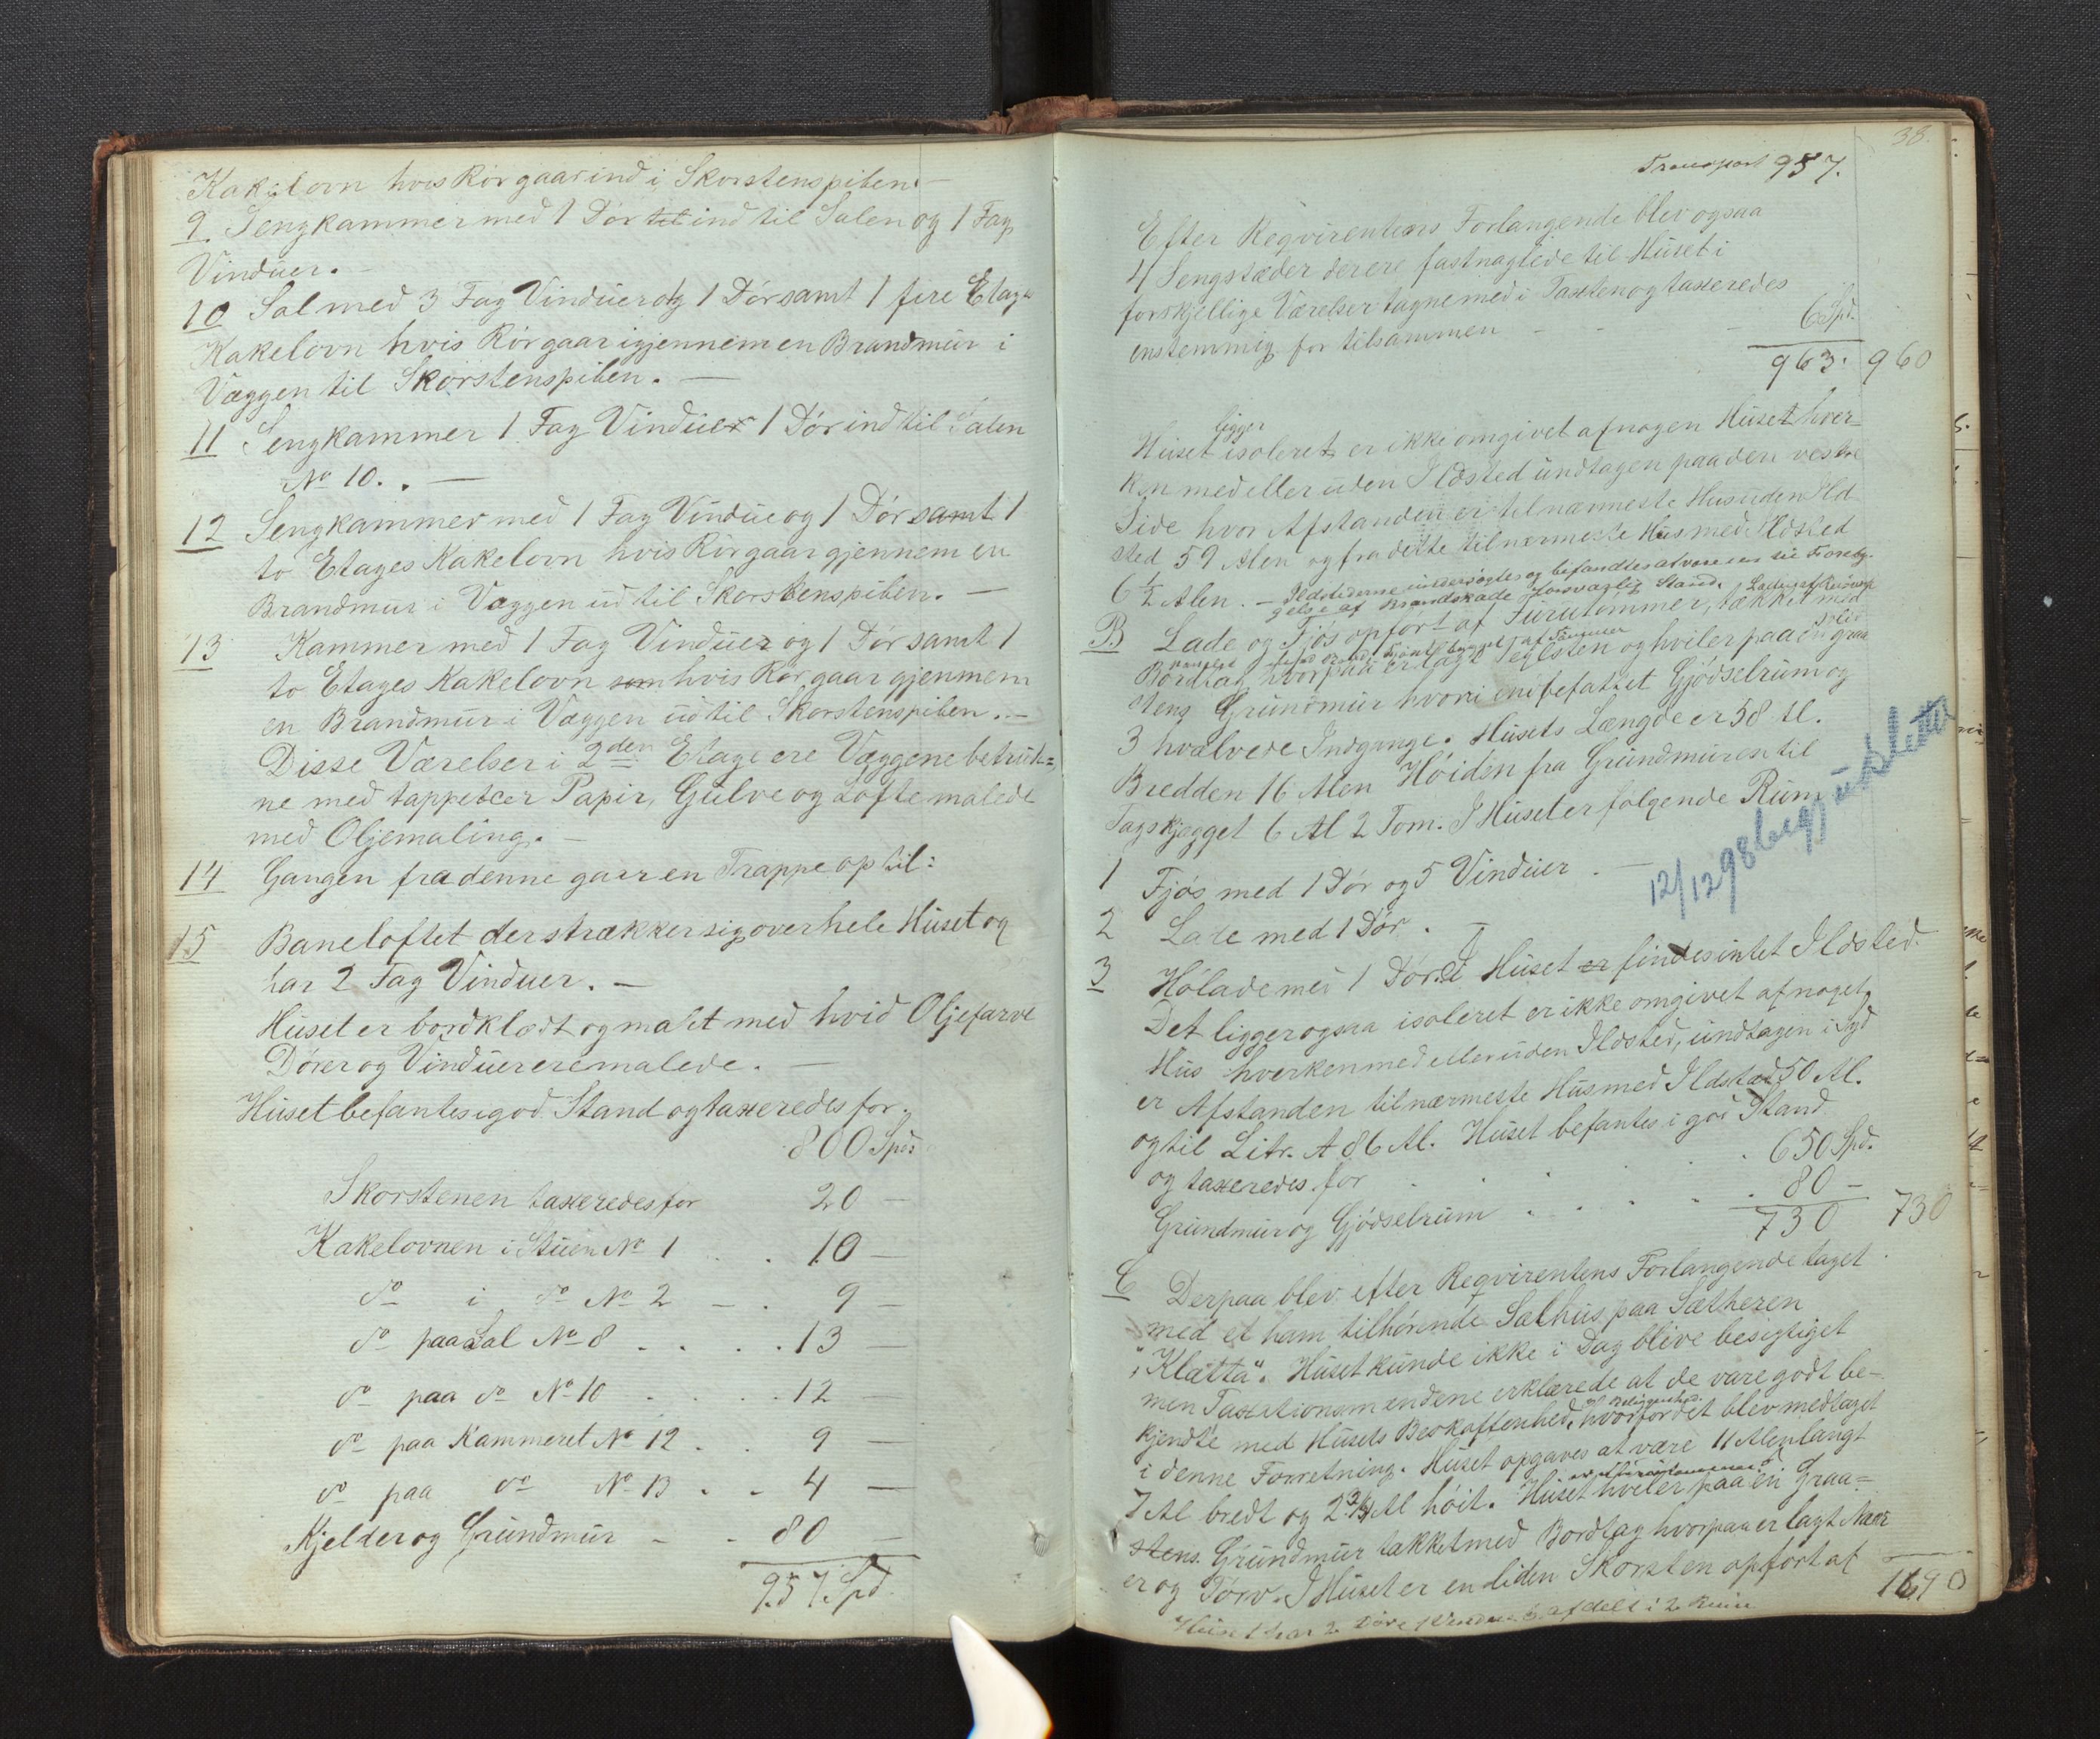 Kakelovn hvis Rör gaar ind i Skorstenspiben. —
9 Sengkammer med 1 Dör til ind til Salen og 1 Fag
Vinduer. —
10 Sal med 3 Fag Vinduer og 1 Dör samt 1 fire Etages
Kakelovn hvis Rör gaar igjennem en Brandmur i
Væggen til Skorstenspiben. —
11 Sengkammer 1 Fag Vinduer 1 Dör ind til Salen
No 10. . —
12 Sengkammer med 1 Fag Vindue og 1 Dör samt 1
to Etages Kakelovn hvis Rör gaar gjennem en
Brandmur i Væggen ud til Skorstenspiben. —
13 Kammer med 1 Fag Vinduer og 1 Dör samt 1
to Etages Kakelovn som hvis Rör gaar gjennem
en Brandmur i Væggen ud til Skorstenspiben. —
Disse Værelser i 2den Etage ere Væggene betruk=
ne med tappetcer Papir, Gulve og Lofte malede
med Oljemaling. —
14 Gangen fra denne gaar en Trappe op til:
15 Baneloftet der strækker sig over hele Huset og
har 2 Fag Vinduer. —
Huset er bordklædt og malet med hvid Oljefarve
Dörer og Vinduer ere malede. —
Huset befantes i god Stand og taxeredes for.
800 Spd
Skorstenen taxeredes for 20 —
Kakelovnen i Stuen No 1 . . 10 —
do i do No 2 — . 9 —
do paa Sal No 8 . . . . 13 —
do paa do No 10 . . . 12 —
do paa Kammeret No 12 . . 9 —
do paa do No 13 . . 4 —
Kjelder og Grundmur - - 80 —
957 Spd.
38
Transport 957.
Efter Reqvirentens Forlangende blev ogsaa
4 Sengstæder der ere fastnaglede til Huset i
forskjellige Værelser tagne med i Taxten og taxeredes
enstemmig for tilsammen - - - 6 Spd.
963. 960
ligger
Huset isoleret er ikke omgivet af nogen Huset hver=
ken med eller uden Ildsted undtagen paa den vestre
Side hvor Afstanden er til nærmeste Hus uden Ild
sted 59 Alen og fra dette til nærmeste Hus med Ildsted
6 1/2 Alen. — Ildstederne undersögtes og befandtes at være en til Forebyg-
gelse af Brandskade forsvarlig Stand.
B Lade og Fjös opfört af Furutömmer, tækket med
Bordtag hvorpaa er lagt Teglsten og hviler paa en graa
stens Grundmur hvori en befattet Gjödselrum og
3 hvælvede Indgange. Husets Længde er 58 Al.
Bredden 16 Alen Höiden fra Grundmuren til
Tagskjægget 6 Al 2 Tom. I Huset er fölgende Rum
12/12 98
1 Fjös med 1 Dör og 5 Vinduer . —
2 Lade med 1 Dör . —
3 Hölade med 1 Dör. I Huset er findes intet Ildsted.
Det ligger ogsaa isoleret er ikke omgivet af noget
Hus hverken med eller uden Ildsted, undtagen i Syd
er Afstanden til nærmeste Hus med Ildsted 50 Al.
og til Litr. A 86 Al. Huset befantes i god Stand
og taxeredes for . . . . . 650 Spd.
Grundmur og Gjödselrum . . . . . 80 —
730 730
C Derpaa blev efter Reqvirentens Forlangende taget
med et ham tilhörende Sælhus paa Sætheren
"Klætta". Huset kunde ikke i Dag blive besigtiget
men Taxationsmændene erklærede at de vare godt be-
kjendte med Husets Beskaffenhed, hvorfor det blev medtaget
og Beliggenhed.
i denne Forretning. Huset opgaves at være 11 Alen langt
7 Al bredt og 2 3/4 Al höit. Huset hviler paa en Graa=
stens Grundmur tækket med Bordtag hvorpaa er lagt Næv
er og Torv. I Huset er en liden Skorsten opfört af
1690
Huset har 2 Döre 1 Vindue & afdelt i 2 Rum